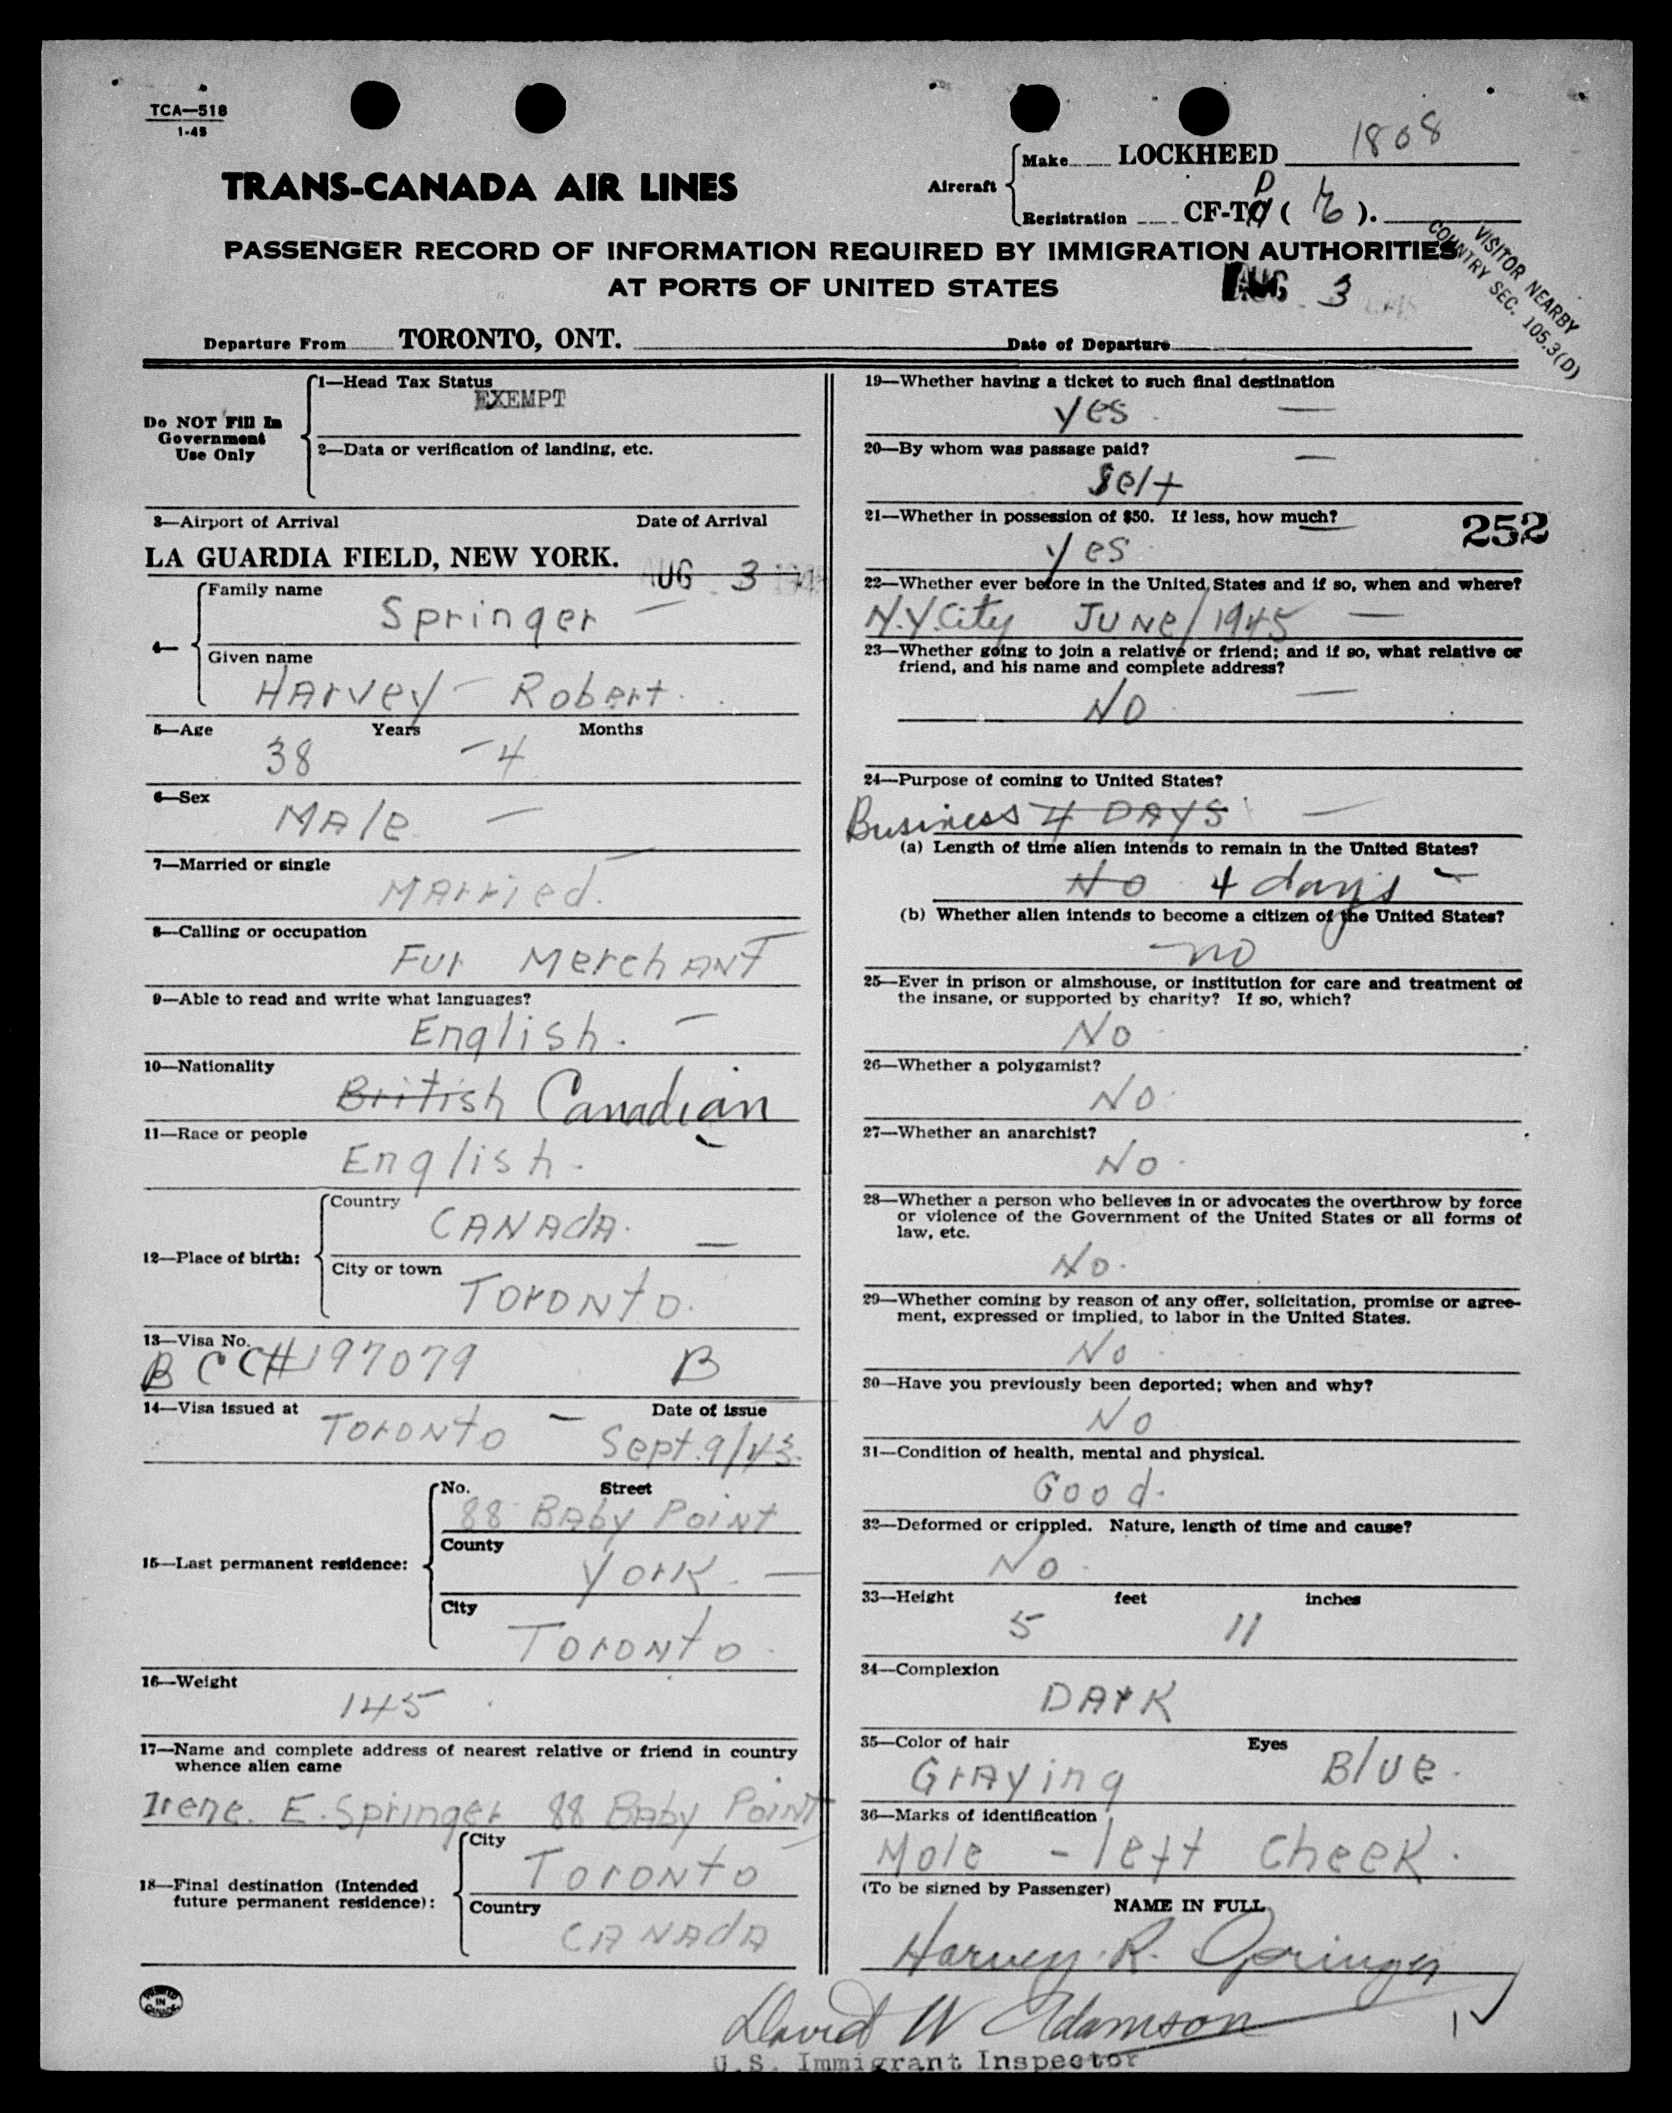 TCA—518
1-45
TRANS-CANADA AIR LINES
Aircraft
Make LOCKHEED 1808
Registration CF-T P ( ).
PASSENGER RECORD OF INFORMATION REQUIRED BY IMMIGRATION AUTHORITIES
AT PORTS OF UNITED STATES
AUG 3 1945
VISITOR NEARBY
COUNTRY SEC. 105.3(D)
Departure From TORONTO, ONT. Date of Departure
Do NOT Fill In
Government
Use Only
1—Head Tax Status
EXEMPT
2—Data or verification of landing, etc.
3—Airport of Arrival Date of Arrival
LA GUARDIA FIELD, NEW YORK. AUG 3 1945
4—
Family name
Springer —
Given name
Harvey - Robert.
5—Age Years Months
38 - 4
6—Sex
Male —
7—Married or single
Married. —
8—Calling or occupation
Fur Merchant
9—Able to read and write what languages?
English. —
10—Nationality
British Canadian
11—Race or people
English.
12—Place of birth:
Country
Canada. —
City or town
Toronto.
13—Visa No.
B C C # 197079 B
14—Visa issued at Date of issue
Toronto — Sept. 9/43.
15—Last permanent residence:
No. Street
88 Baby Point
County
York. —
City
Toronto.
16—Weight
145
17—Name and complete address of nearest relative or friend in country
whence alien came
Irene. E. Springer 88 Baby Point
18—Final destination (Intended
future permanent residence):
City
Toronto
Country
Canada
PRINTED
IN
CANADA
19—Whether having a ticket to such final destination
yes. —
20—By whom was passage paid?
Self —
21—Whether in possession of $50. If less, how much?
yes. 252
22—Whether ever before in the United States and if so, when and where?
N.Y. City June/1945 —
23—Whether going to join a relative or friend; and if so, what relative or
friend, and his name and complete address?
No —
24—Purpose of coming to United States?
Business 4 Days —
(a) Length of time alien intends to remain in the United States?
No 4 days —
(b) Whether alien intends to become a citizen of the United States?
no
25—Ever in prison or almshouse, or institution for care and treatment of
the insane, or supported by charity? If so, which?
No.
26—Whether a polygamist?
No.
27—Whether an anarchist?
No.
28—Whether a person who believes in or advocates the overthrow by force
or violence of the Government of the United States or all forms of
law, etc.
No.
29—Whether coming by reason of any offer, solicitation, promise or agree-
ment, expressed or implied, to labor in the United States.
No.
30—Have you previously been deported; when and why?
No
31—Condition of health, mental and physical.
Good.
32—Deformed or crippled. Nature, length of time and cause?
No.
33—Height feet inches
5 11
34—Complexion
Dark
35—Color of hair Eyes
Graying Blue.
36—Marks of identification
Mole - left cheek.
(To be signed by Passenger)
NAME IN FULL
Harvey. R. Springer
David W Adamson
U.S. Immigrant Inspector